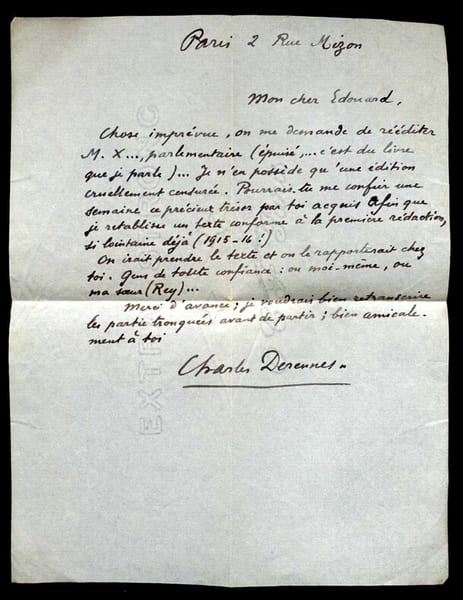 Paris 2 Rue Mizon
Mon cher Edouard,
Chose imprévue, on me demande de rééditer
M. X..., parlementaire (épuisé,... c'est du livre
que je parle)... Je n'en possède qu'une édition
cruellement censurée. Pourrais-tu me confier une
semaine ce précieux trésor par toi acquis afin que
je rétablisse un texte conforme à la première rédaction,
si lointaine déjà (1915-16!)
On irait prendre le texte et on le rapporterait chez
toi. Gens de toute confiance: ou moi-même, ou
ma sœur (Rey)...
Merci d'avance; je voudrais bien retranscrire
les partie tronquées avant de partir; bien amicale-
ment à toi
Charles Derennes
EXTRA